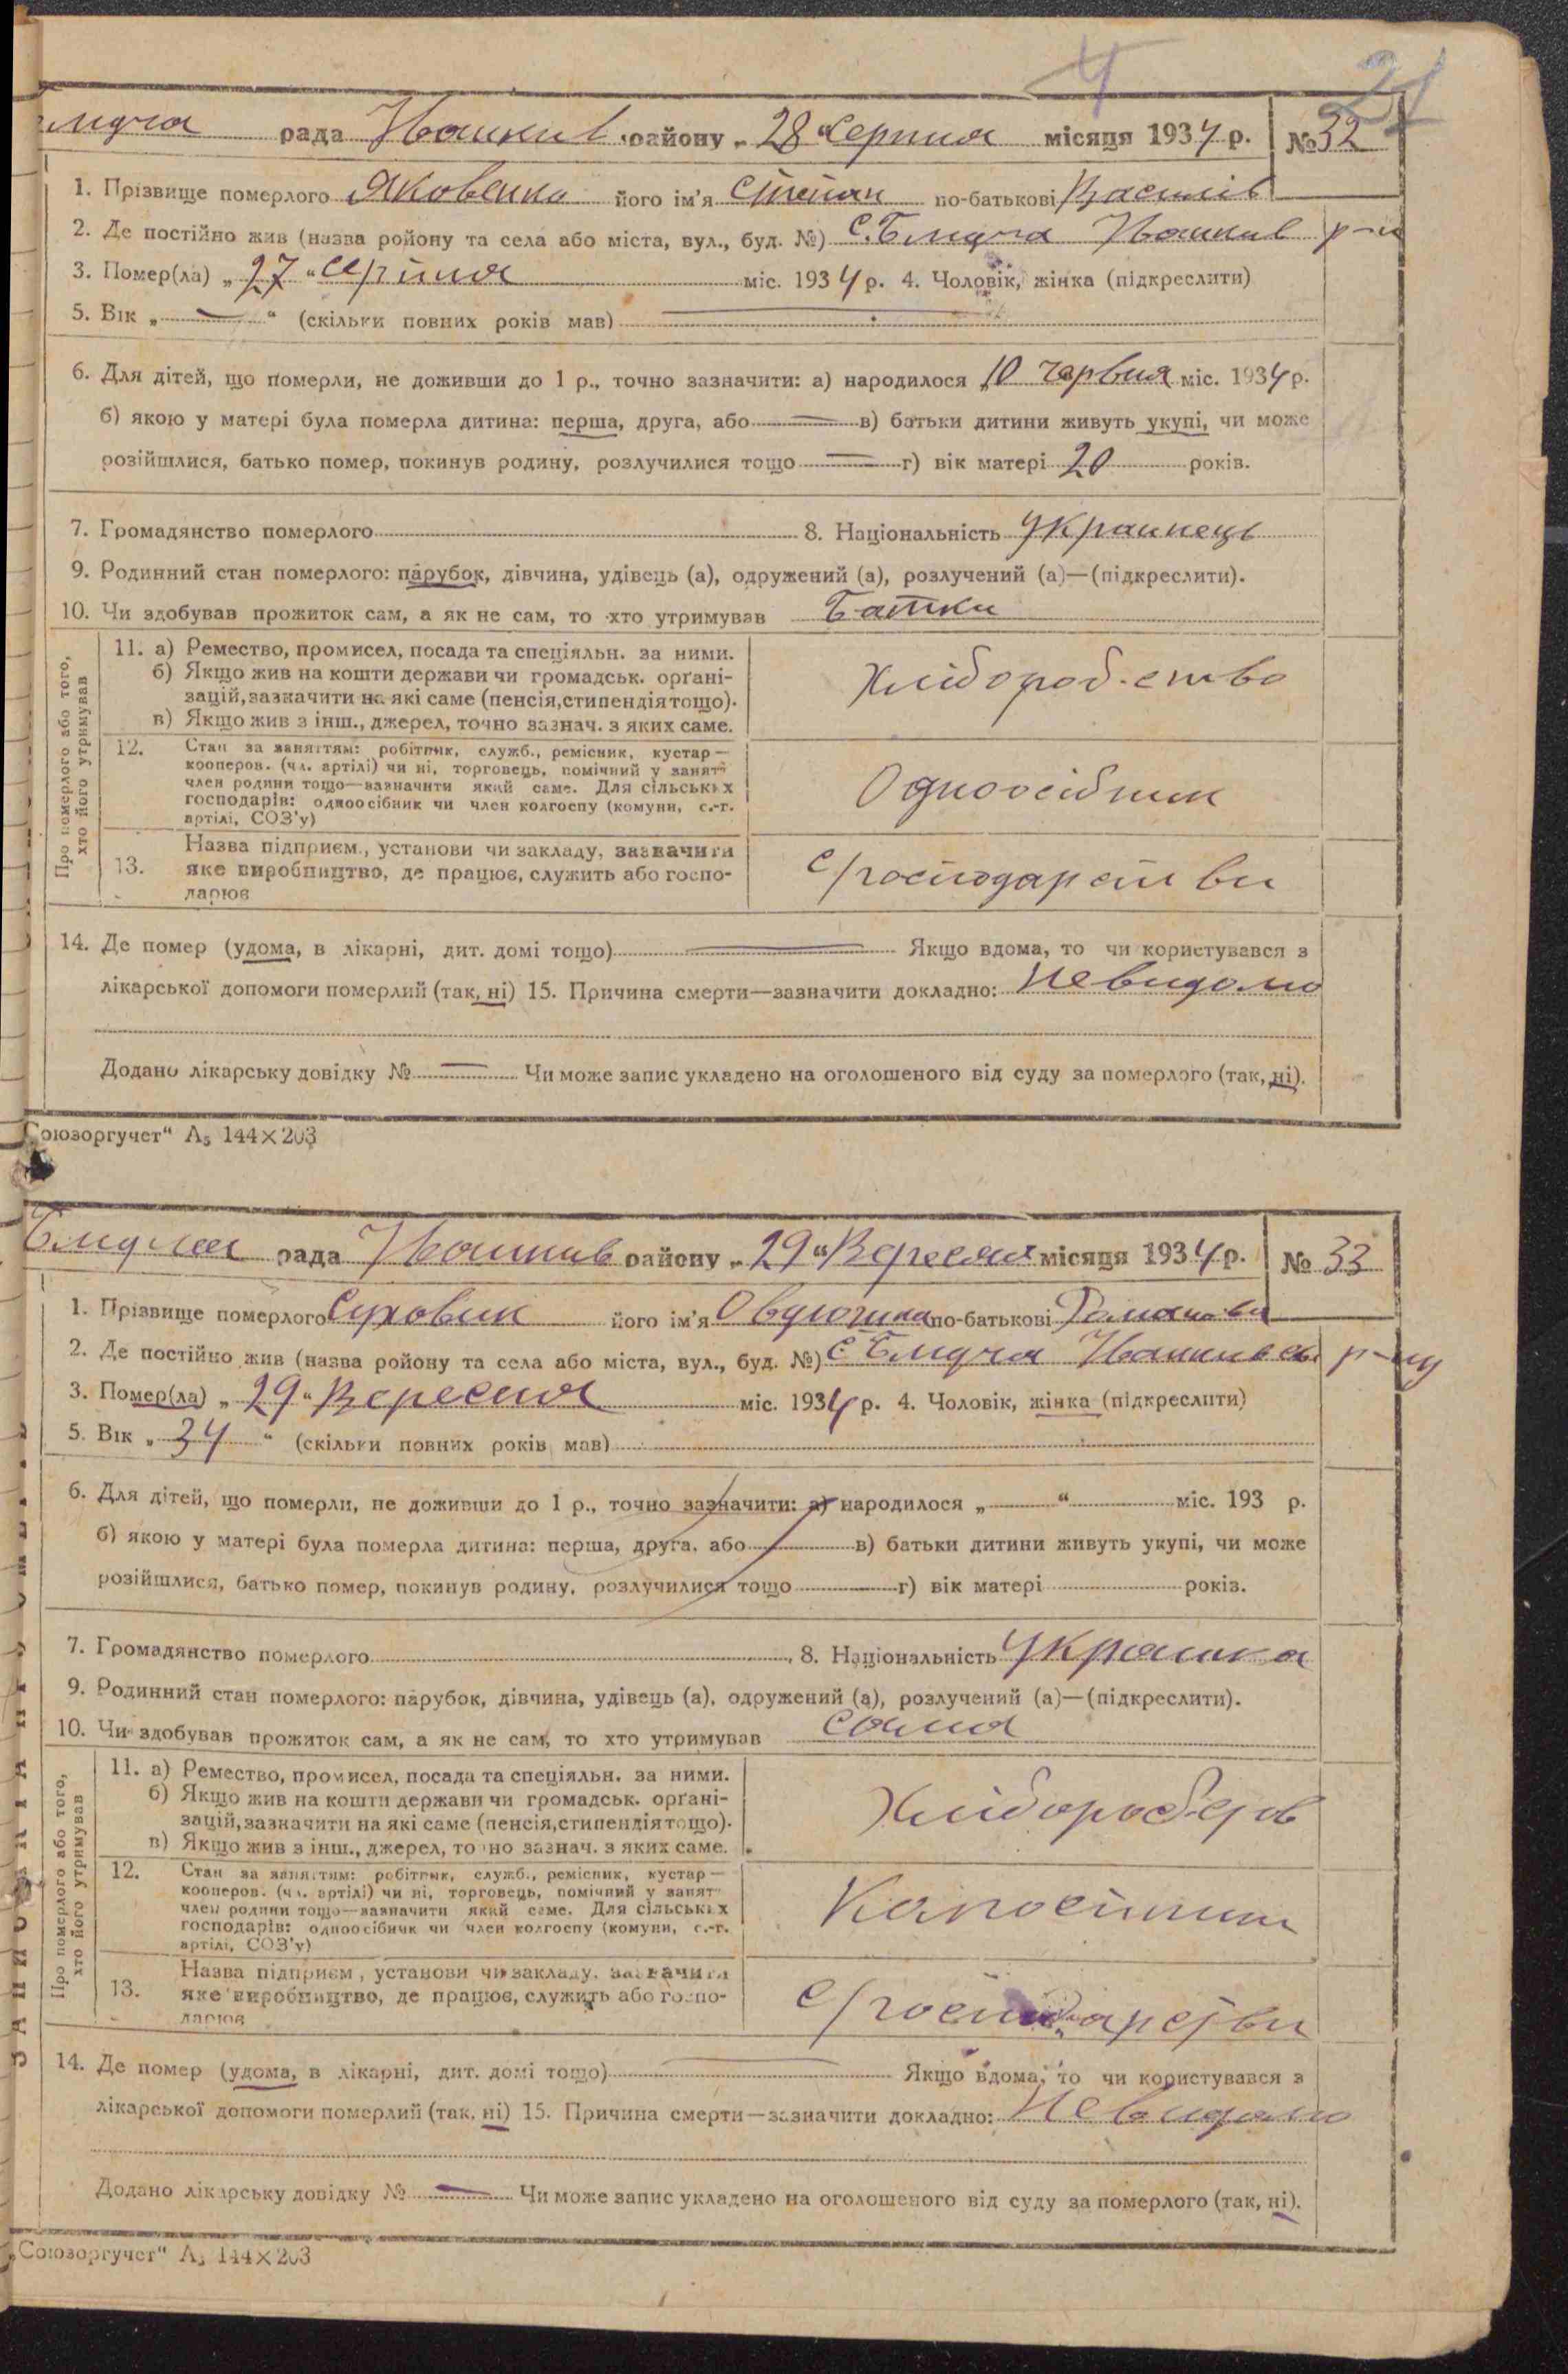 4 21
рада Івашків району „ 28 “ Серпня місяця 1934 р. № 32
1. Прізвище померлого Яковенко його ім'я Степан по-батькові Василів
2. Де постійно жив (назва ройону та села або міста, вул., буд. №) с. Блидча Івашків р-н
3. Помер(ла) „ 27 “ серпня міс. 1934 р. 4. Чоловік, жінка (підкреслити)
5. Вік „ — “ (скільки повних років мав)
6. Для дітей, що померли, не доживши до 1 р., точно зазначити: а) народилося 10 червня міс. 1934 р.
б) якою у матері була померла дитина: перша, друга, або — в) батьки дитини живуть укупі, чи може
розійшлися, батько помер, покинув родину, розлучилися тощо — г) вік матері 20 років.
7. Громадянство померлого 8. Національність Украинець
9. Родинний стан померлого: парубок, дівчина, удівець (а), одружений (а), розлучений (а)—(підкреслити).
10. Чи здобував прожиток сам, а як не сам, то хто утримував Батки
Про померлого або того, хто його утримував
11. а) Ремество, промисел, посада та спеціяльн. за ними.
б) Якщо жив на кошти держави чи громадськ. орґані-
зацій, зазначити на які саме (пенсія, стипендія тощо).
в) Якщо жив з інш., джерел, точно зазнач. з яких саме.
Хлібороб-ство
12. Стан за заняттям: робітник, служб., ремісник, кустар —
кооперов. (чл. артілі) чи ні, торговець, помічний у занят
член родини тощо—зазначити який саме. Для сільських
господарів: одноосібник чи член колгоспу (комуни, с.-г.
артілі, СОЗ'у)
Одноосібник
13. Назва підприєм., установи чи закладу, зазначити
яке виробництво, де працює, служить або госпо-
дарює
с/господарстви
14. Де помер (удома, в лікарні, дит. домі тощо) — Якщо вдома, то чи користувався з
лікарської допомоги померлий (так, ні) 15. Причина смерти—зазначити докладно: Невидомо
Додано лікарську довідку № — Чи може запис укладено на оголошеного від суду за померлого (так, ні).
Союзоргучет“ А₅ 144×203
Блидчая рада Івашків району „ 29 “ Вересня місяця 1934 р. № 33
1. Прізвище померлого Суховик його ім'я по-батькові Романова
2. Де постійно жив (назва ройону та села або міста, вул., буд. №) с. Блидча р-ну
3. Помер(ла) „ 29 “ Вересня міс. 1934 р. 4. Чоловік, жінка (підкреслити)
5. Вік „ 34 “ (скільки повних років мав)
6. Для дітей, що померли, не доживши до 1 р., точно зазначити: а) народилося „ “ міс. 193 р.
б) якою у матері була померла дитина: перша, друга, або в) батьки дитини живуть укупі, чи може
розійшлися, батько помер, покинув родину, розлучилися тощо г) вік матері років.
7. Громадянство померлого 8. Національність Украинка
9. Родинний стан померлого: парубок, дівчина, удівець (а), одружений (а), розлучений (а)—(підкреслити).
10. Чи здобував прожиток сам, а як не сам, то хто утримував сама
Про померлого або того, хто його утримував
11. а) Ремество, промисел, посада та спеціяльн. за ними.
б) Якщо жив на кошти держави чи громадськ. орґані-
зацій, зазначити на які саме (пенсія, стипендія тощо).
в) Якщо жив з інш., джерел, точно зазнач. з яких саме.
12. Стан за заняттям: робітник, служб., ремісник, кустар —
кооперов. (чл. артілі) чи ні, торговець, помічний у занят
член родини тощо—зазначити який саме. Для сільських
господарів: одноосібник чи член колгоспу (комуни, с.-г.
артілі, СОЗ'у)
13. Назва підприєм., установи чи закладу, зазначити
яке виробництво, де працює, служить або госпо-
дарює
с/господарстви
14. Де помер (удома, в лікарні, дит. домі тощо) — Якщо вдома, то чи користувався з
лікарської допомоги померлий (так, ні) 15. Причина смерти—зазначити докладно: Невидомо
Додано лікарську довідку № — Чи може запис укладено на оголошеного від суду за померлого (так, ні).
„Союзоргучет“ А₅ 144×203